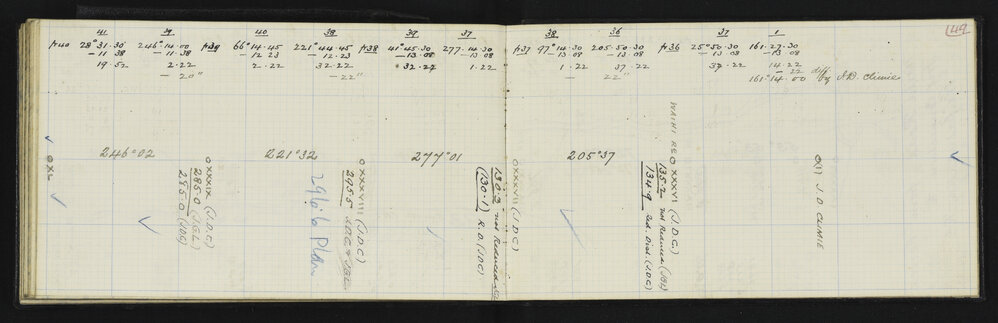 49
41 39 40 38 39 37 38 36 37 1
fr 40 28° 31·30 246° 14·00 fr 39 66° 14·45 221° 44·45 fr 38 41° 45·30 277·14·30 fr 37 97° 14·30 205·50·30 fr 36 25° 50·30 161·27·30
— 11 38 — 11·38 — 12 23 — 12·23 — 13·08 — 13·08 — 13 08 — 13·08 — 13 08 — 13·08
19·52 2·22 2·22 32·22 32·22 1·22 1·22 37·22 37·22 14·22
— 20" — 22" — 22" — 22 diff
161° 14·00 by J.D. Climie
246° 02 221° 32 277° 01 205° 37
O XL
O XXXIX (J.D.C)
285·0 (J.G.L)
285·0 (JDC)
O XXXVIII (J.D.C)
295·5 J.D.C. & J.G.L.
296·6 Plan
O XXXVII (J.D.C)
130·2 not Reduced
(130·1) R.D. (JDC)
WAIHI RE O XXXVI (J.D.C.)
135·2 not Reduced (JGL)
134·9 Red. Dist. (J.D.C)
O(1) J. D CLIMIE